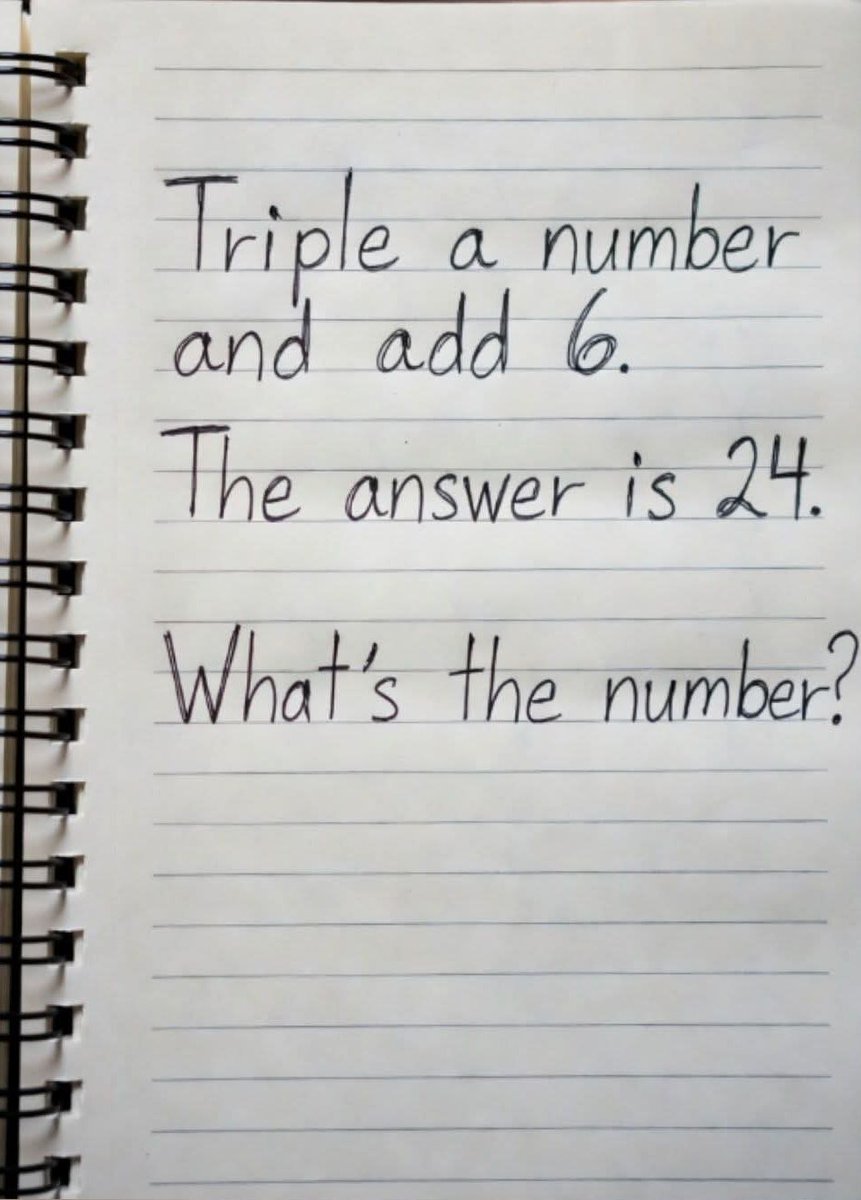 Triple a number
and add 6.
The answer is 24.
What's the number?